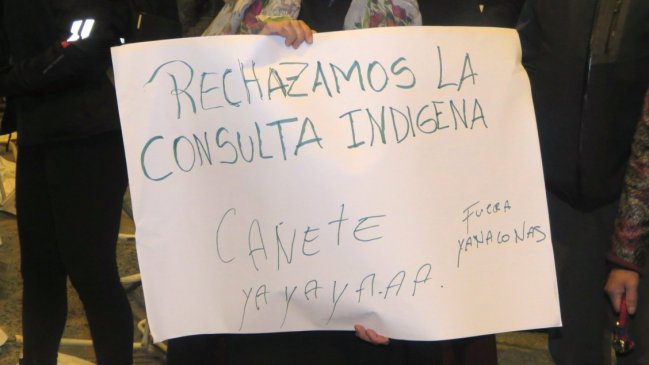 RECHAZAMOS LA
CONSULTA INDIGENA
CAÑETE
YA YA YA.A.A.
FUERA
YANACONAS